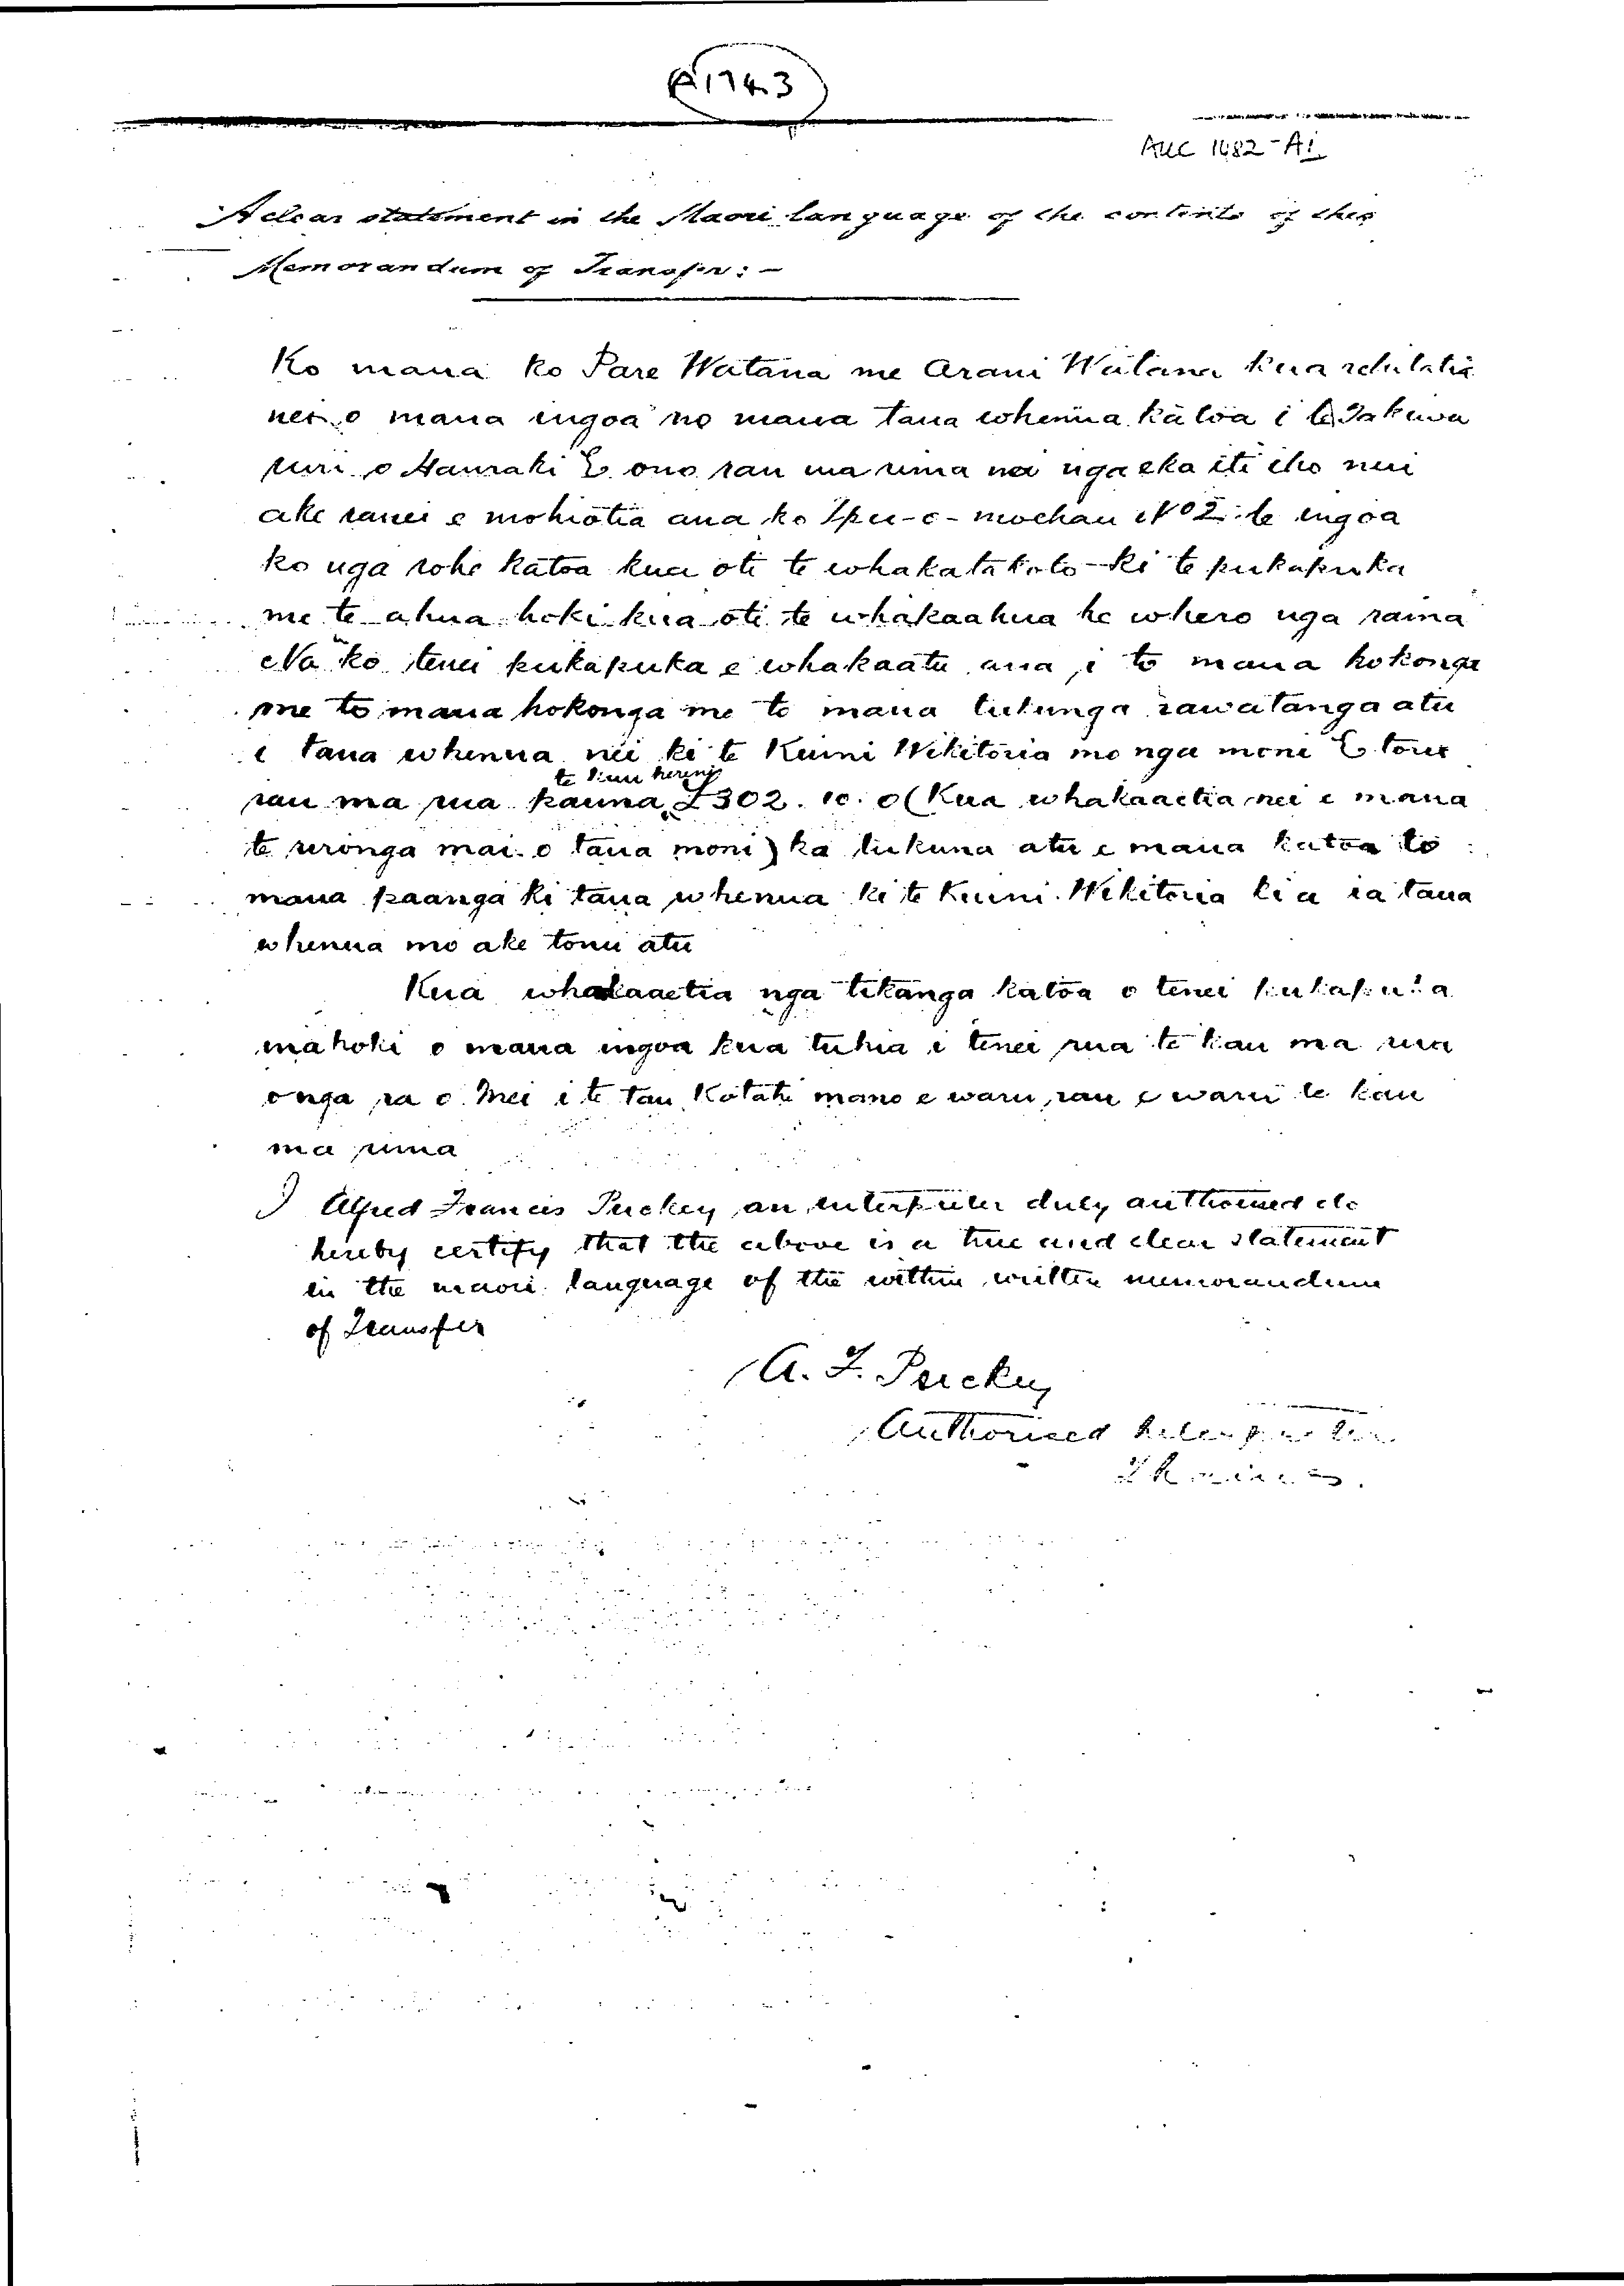 1743
AUC 1482-A1
A clear statement in the Maori language of the contents of this
Memorandum of Transfer: —
Ko maua ko Pare Watana me Arani Watana kua rehitatia
nei o maua ingoa no maua taua whenua katoa i te Takiwa
o Hauraki E ono rau ma rima nei nga eka iti iho nui
ake ranei e mohiotia ana ko Ipu-o-moehau No 2 te ingoa
ko nga rohe katoa kua oti te whakatakoto ki te pukapuka
me te ahua hoki kua oti te whakaahua he whero nga raina
Na ko tenei pukapuka e whakaatu ana i to maua hokonga
me to maua hokonga me to maua tukunga rawatanga atu
i taua whenua nei ki te Kuini Wikitoria mo nga moni E toru
te kau hereni
rau ma rua pauna £302. 10. 0 (Kua whakaaetia nei e maua
te rironga mai o taua moni) ka tukuna atu e maua katoa to
maua paanga ki taua whenua ki te Kuini Wikitoria kia ia taua
whenua mo ake tonu atu
Kua whakaaetia nga tikanga katoa o tenei pukapuka
ina hoki o maua ingoa kua tuhia i tenei rua te kau ma rua
o nga ra o Mei i te tau Kotahi mano e waru rau e waru te kau
ma rima
I Alfred Francis Puckey an interpreter duly authorised do
hereby certify that the above is a true and clear statement
in the maori language of the within written memorandum
of Transfer
A. F. Puckey
Authorised Interpreter